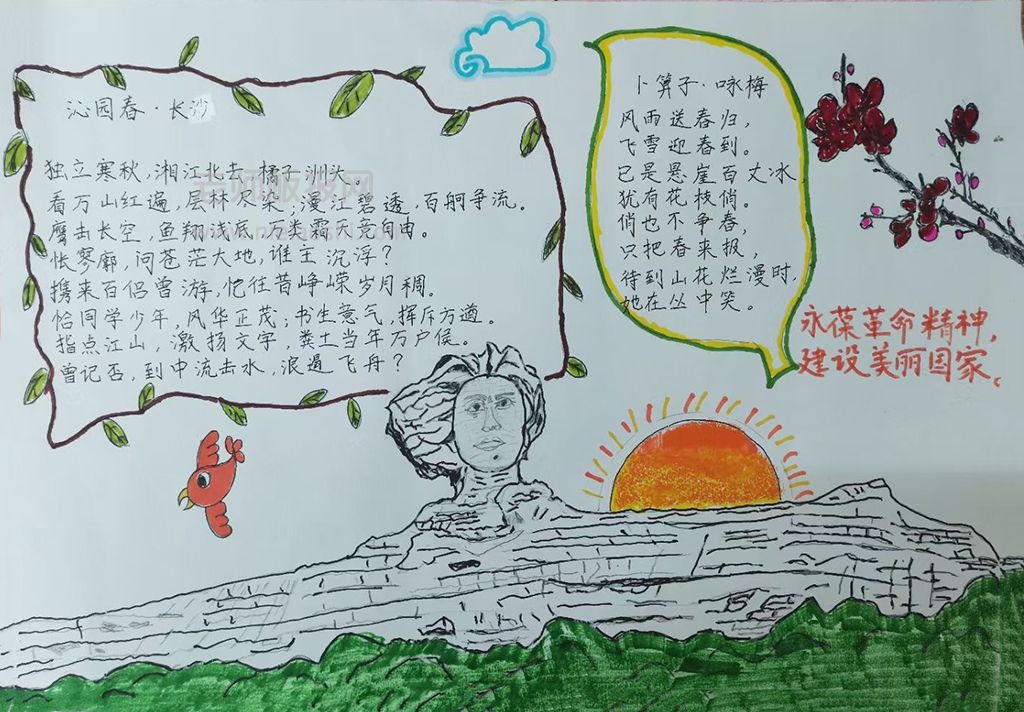 沁园春·长沙
独立寒秋,湘江北去,橘子洲头。
看万山红遍,层林尽染;漫江碧透,百舸争流。
鹰击长空,鱼翔浅底,万类霜天竞自由。
怅寥廓,问苍茫大地,谁主沉浮?
携来百侣曾游,忆往昔峥嵘岁月稠。
恰同学少年,风华正茂;书生意气,挥斥方遒。
指点江山,激扬文字,粪土当年万户侯。
曾记否,到中流击水,浪遏飞舟?
卜算子·咏梅
风雨送春归,
飞雪迎春到。
已是悬崖百丈冰
犹有花枝俏。
俏也不争春,
只把春来报,
待到山花烂漫时,
她在丛中笑。
永葆革命精神,
建设美丽国家。